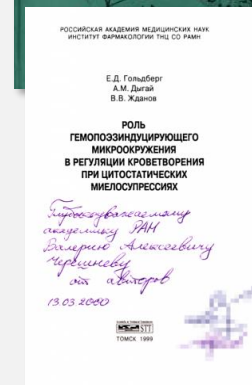 РОССИЙСКАЯ АКАДЕМИЯ МЕДИЦИНСКИХ НАУК
ИНСТИТУТ ФАРМАКОЛОГИИ ТНЦ СО РАМН
Е.Д. Гольдберг
А.М. Дыгай
В.В. Жданов
РОЛЬ
ГЕМОПОЭЗИНДУЦИРУЮЩЕГО
МИКРООКРУЖЕНИЯ
В РЕГУЛЯЦИИ КРОВЕТВОРЕНИЯ
ПРИ ЦИТОСТАТИЧЕСКИХ
МИЕЛОСУПРЕССИЯХ
Глубокоуважаемому
академику РАН
Валерию Алексеевичу
Черешневу
от авторов
13.03.2000
STT
ТОМСК 1999